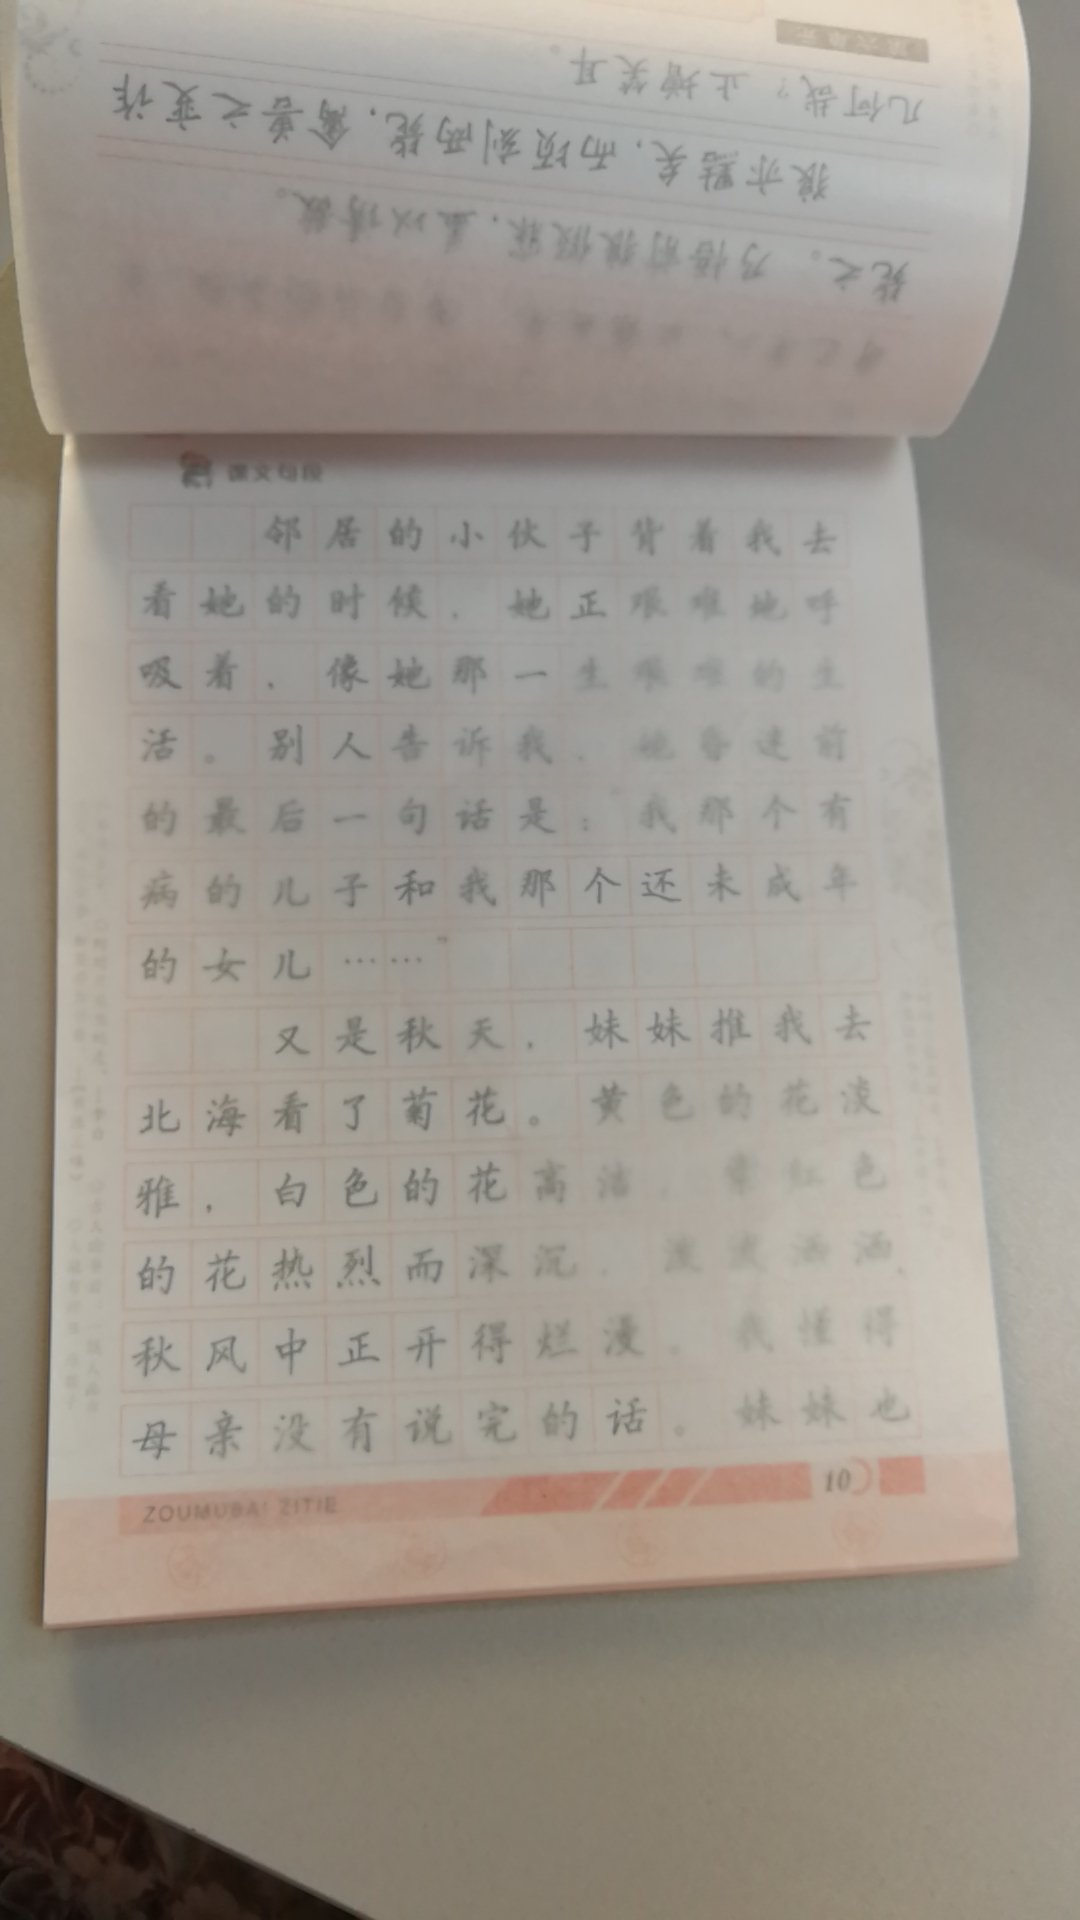 几何哉？止增笑耳。
狼亦黠矣，而顷刻两毙，禽兽之变诈
毙之。乃悟前狼假寐，盖以诱敌。
课文句段
邻居的小伙子背着我去
看她的时候，她正艰难地呼
吸着，像她那一生艰难的生
活。别人告诉我，她昏迷前
的最后一句话是：我那个有
病的儿子和我那个还未成年
的女儿……”
又是秋天，妹妹推我去
北海看了菊花。黄色的花淡
雅，白色的花高洁，紫红色
的花热烈而深沉，泼泼洒洒，
秋风中正开得烂漫。我懂得
母亲没有说完的话。妹妹也
ZOUMUBAI ZITIE
10